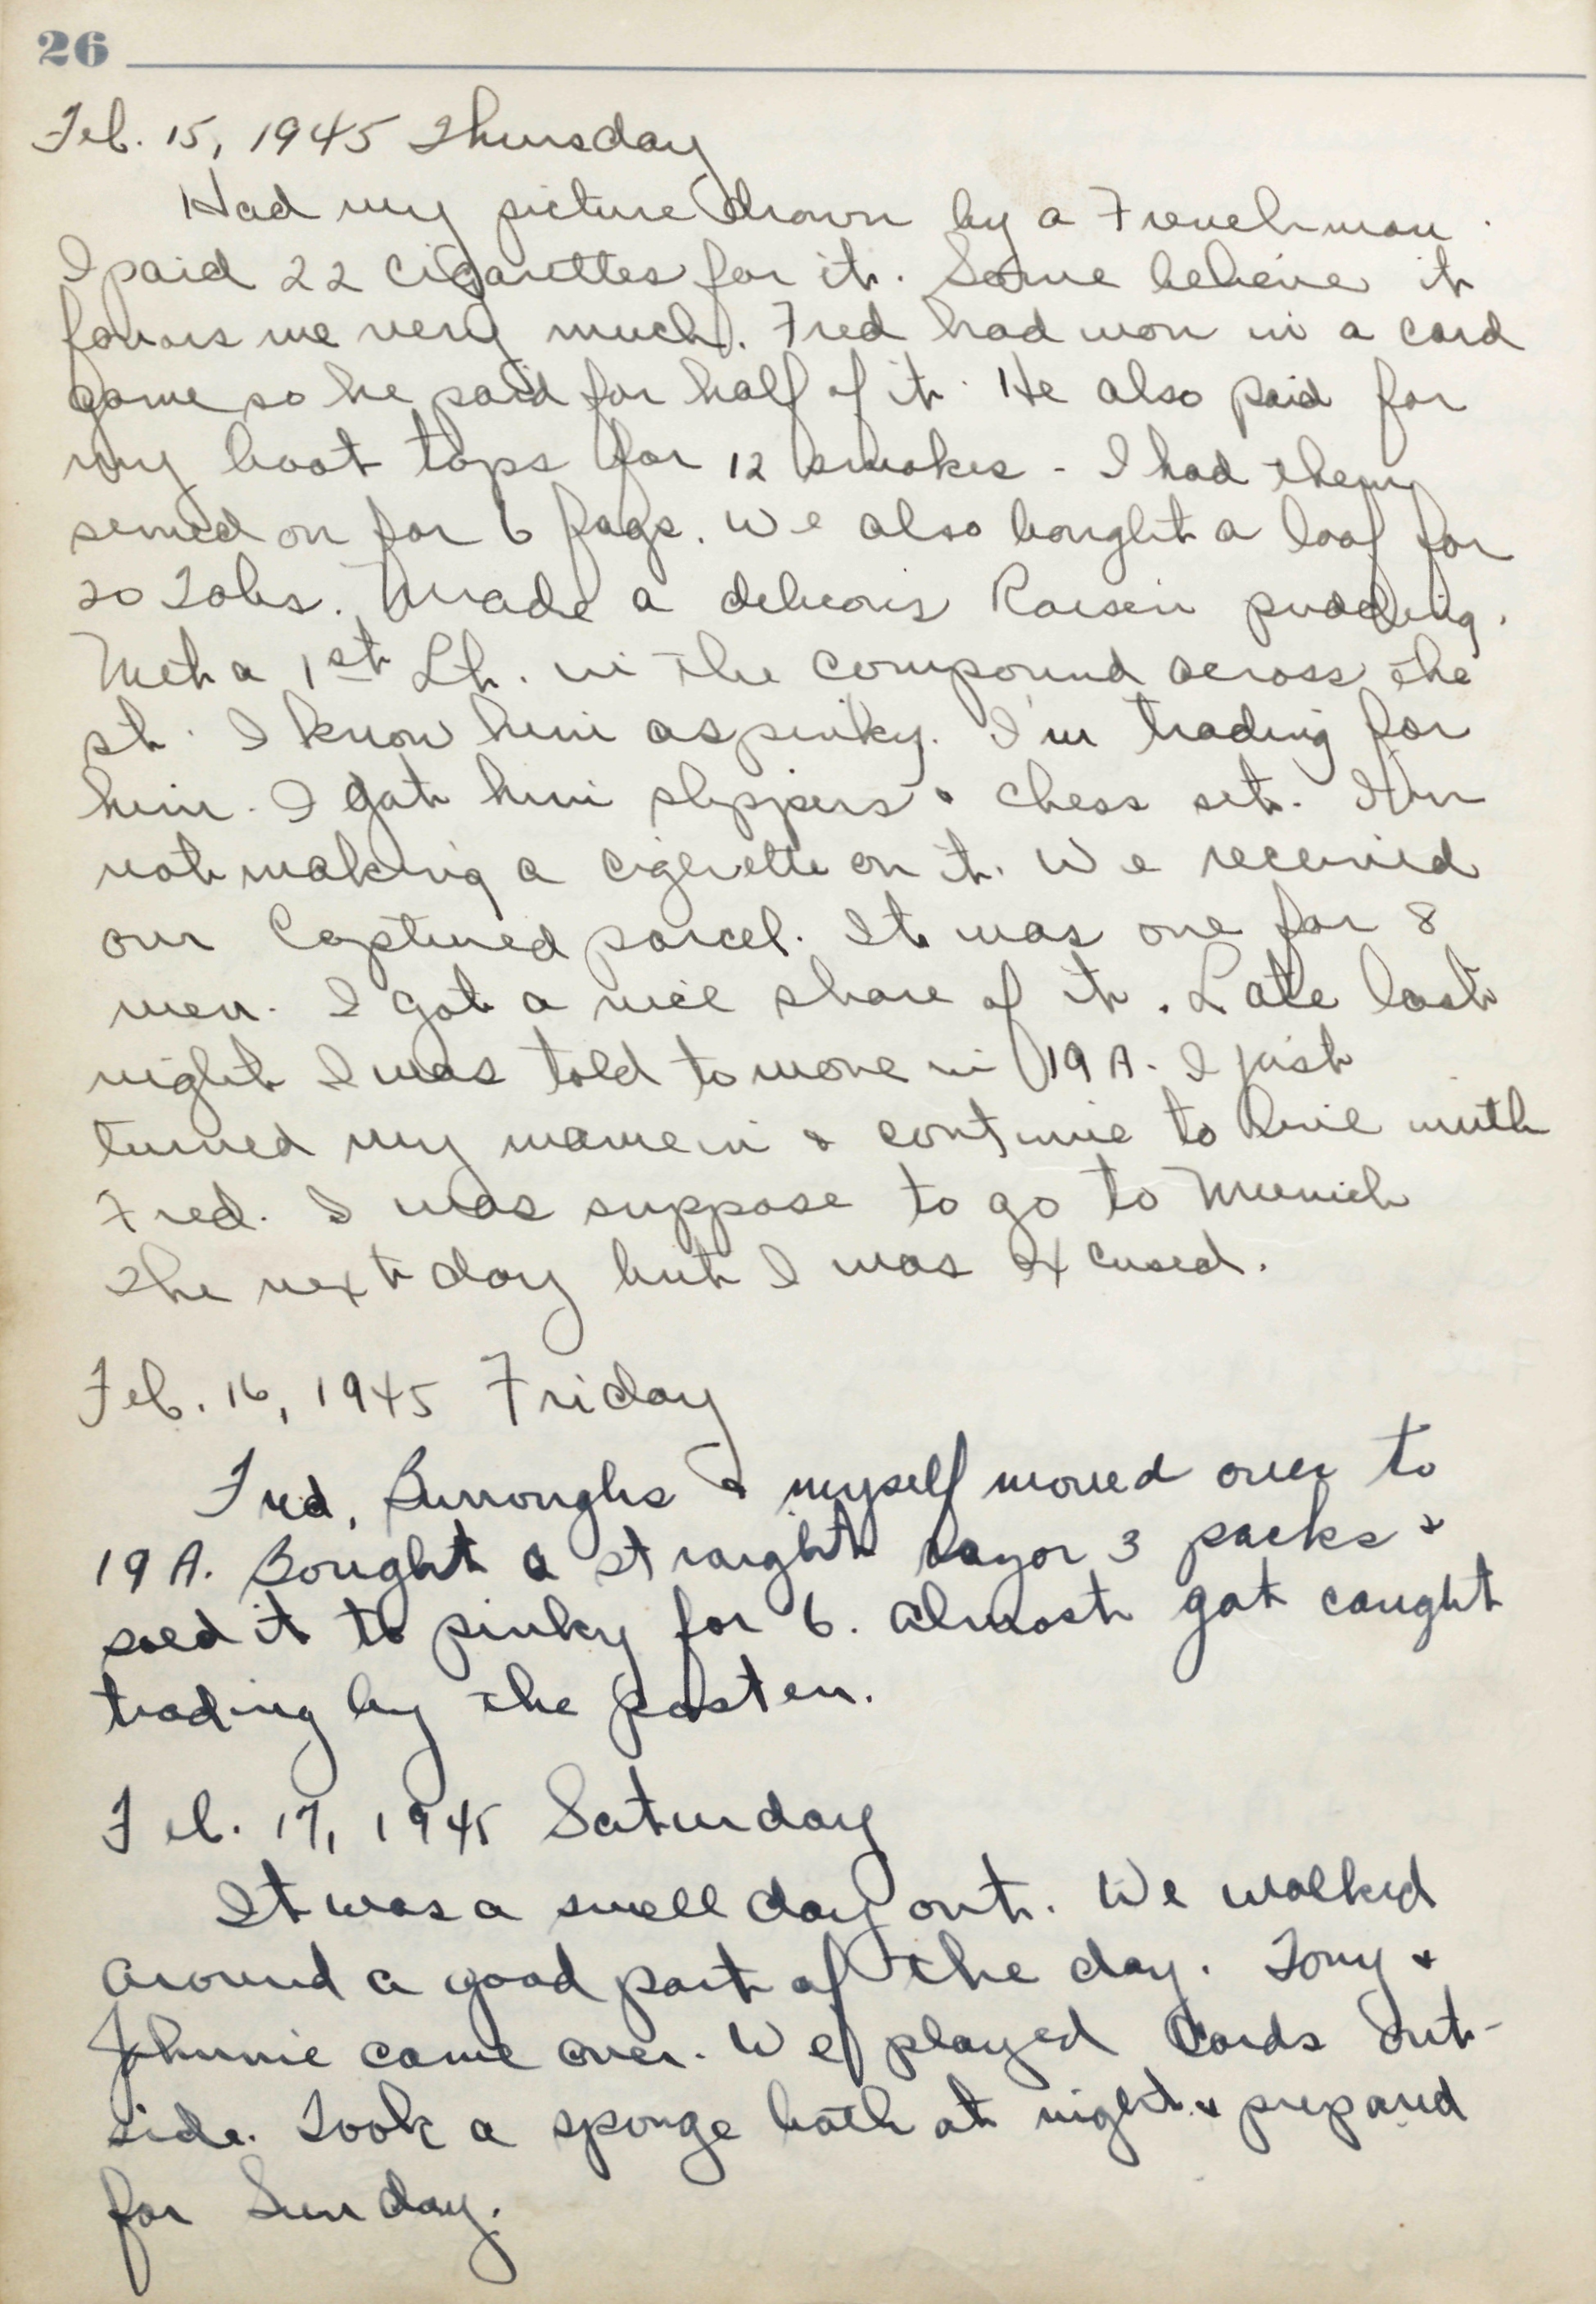 26
Feb. 15, 1945 Thursday
Had my picture drawn by a Frenchman.
I paid 22 cigarettes for it. Some believe it
favors me very much. Fred had won in a card
game so he paid for half of it. He also paid for
my boot tops for 12 smokes - I had them
sewed on for 6 fags. We also bought a loaf for
20 Tobs. Made a delicois Raisin pudding.
Met a 1st Lt. in the compound across the
st. I know him as pinky. I'm trading for
him. I got him slippers & chess set. I'm
not making a cigerette on it. We received
our Captured parcel. It was one for 8
men. I got a nice share of it. Late last
night I was told to move in 19 A. I just
turned my name in & continue to live with
Fred. I was suppose to go to Munich
the next day but I was excused.
Feb. 16, 1945 Friday
Fred, Burroughs & myself moved over to
19 A. Bought a straight razor 3 packs &
sold it to pinky for 6. Almost got caught
trading by the posten.
Feb. 17, 1945 Saturday
It was a swell day out. We walked
around a good part of the day. Tony &
Johnnie came over. We played cards out-
side. Took a sponge bath at night & prepared
for Sunday.